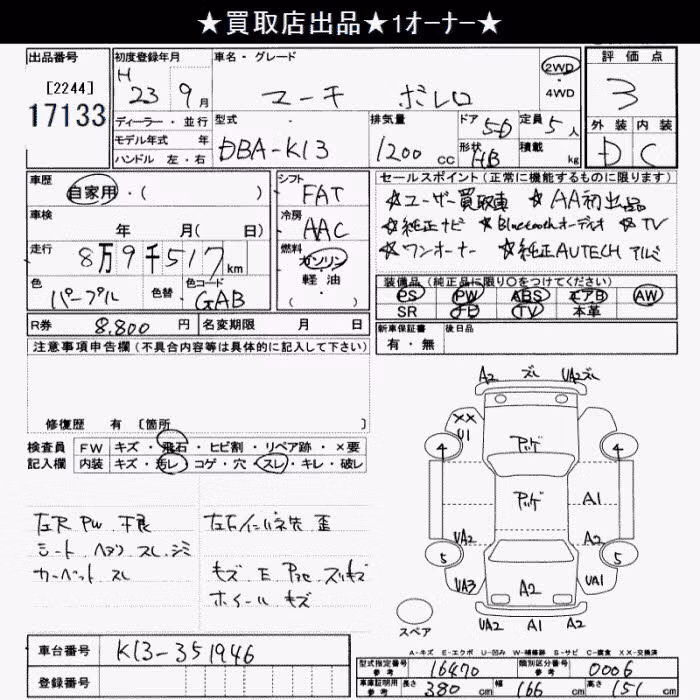 ★買取店出品★1オーナー★
出品番号
[2244]
17133
初度登録年月
H 23 9月
車名・グレード
マーチ ボレロ
2WD
・
4WD
評価点
3
ディーラー・並行
モデル年式 年
ハンドル 左・右
型式
DBA-K13
排気量
1200 CC
ドア 5D
形状 HB
定員 5人
積載 kg
外装 内装
D C
車歴
自家用・( )
車検
年 月( 日)
走行
8万9千517km
色
パープル
色替
色コード
GAB
シフト
FAT
冷房
AAC
燃料
ガソリン
・
軽油
( )
セールスポイント(正常に機能するものに限ります)
☆ユーザー買取車 ☆AA初出品
☆純正ナビ ☆Bluetoothオーディオ ☆TV
☆ワンオーナー ☆純正AUTECHアルミ
装備品(純正品に限り○をつけてください)
PS PW ABS エアB AW
SR ナビ TV 本革
R券 8,800円 名変期限 月 日
新車保証書
有・無
後日品
注意事項申告欄(不具合内容等は具体的に記入して下さい)
修復歴 有 〔箇所
検査員
記入欄
FW キズ・飛石・ヒビ割・リペア跡・×要
内装 キズ・汚レ・コゲ・穴・スレ・キレ・破レ
左R PW 不良
シート ヘタリ スレ シミ
カーペット スレ
左右インパネ先 歪
キズ E スリキズ
ホイール キズ
A2 ズレ UA2ズレ
XX
U1
アッゲ
4 4
アッゲ
A1
UA2 A2
5 5
UA3 A2 UA1
UA2 A1 A2
スペア
A-キズ E-エクボ U-凹み W-補修跡 S-サビ C-腐食 XX-交換済
車台番号 K13-351946
登録番号
型式指定番号
参考
16470
類別区分番号
参考
0006
車庫証明用
参考
長さ 380cm 幅 166cm 高さ 151cm